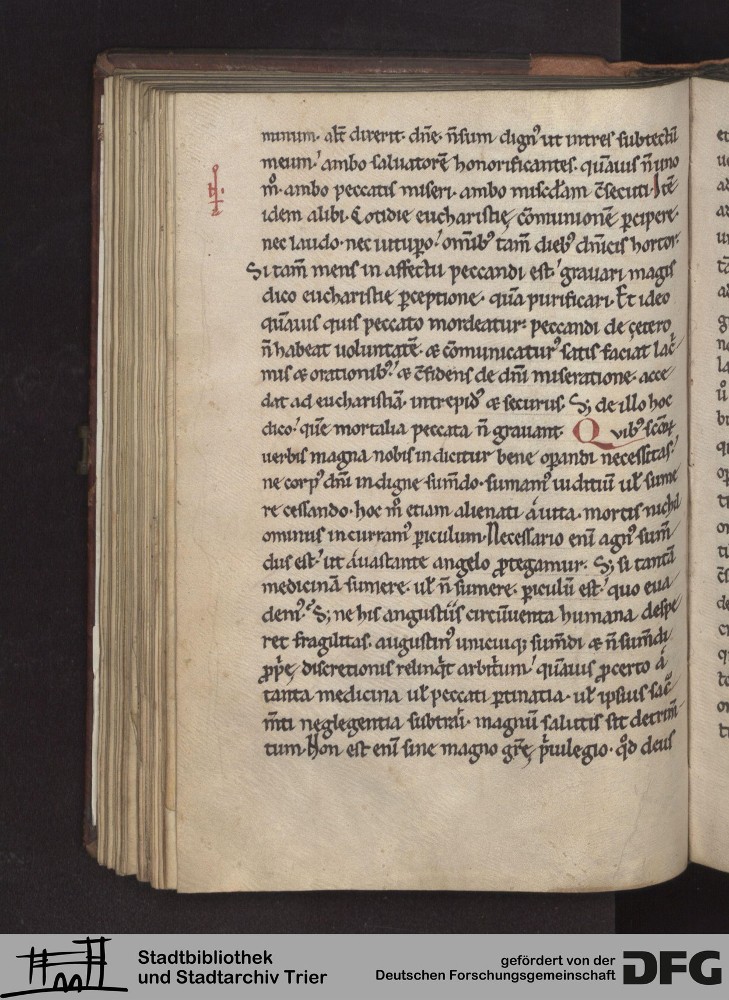 minum. alt̄ dixerit. dn̄e. n̄ sum dignꝰ ut intres sub tectū
meum.' ambo saluatorē honorificantes. quāuis n̄ uno
m̊. ambo peccatis miseri. ambo miscđam c̄secuti. Itē
idem alibi. Cotidie eucharistię cōmunionē ꝑcipere.
nec laudo. nec uituꝑo.' omīibꝰ tam̄ diebꝰ dn̄icis hortor.
Si tam̄ mens in affectu peccandi est.' grauari magis
dico eucharistie ꝑceptione. quā purificari. Et ideo
quāuis quis peccato mordeatur: peccandi de cetero
n̄ habeat uoluntatē. & cōmunicaturꝰ satis faciat lac̄
mis & orationibꝰ.' & c̄fidens de dn̄i miseratione. acce
dat ad eucharistiā. intrepidꝰ & securus. S; de illo hoc
dico.' quē mortalia peccata n̄ grauant. Quibꝰ scōꝝ
uerbis magna nobis indicitur bene oꝑandi necessitas.'
ne corpꝰ dn̄i indigne sum̄do. sumamꝰ iuditiū ul̄ sume
re cessando. hoc m̊ etiam alienati a uita. mortis nichil
ominus incurramꝰ ꝑiculum. Necessario eni agnꝰ sum̄
dus est.' ut a uastante angelo ꝓtegamur. S; si tantā
medicinā sumere. ul̄ n̄ sumere. ꝑiculū est.' quo eua
demꝰ? S; ne his angustiis circūuenta humana despe
ret fragilitas. augustinꝰ unicuiq; sum̄di & n̄ sum̄di
ꝓp̄e discretionis relinqt arbitrium.' quāuis ꝓcerto a
tanta medicina ul̄ peccati ꝑtinatia. ul̄ ipsius sac̄
m̄ti neglegentia subtrai. magnū salutis sit detrim̄
tum. Non est eni sine magno gr̄ę priuilegio. qd̊ deus
Stadtbibliothek
und Stadtarchiv Trier
gefördert von der
Deutschen Forschungsgemeinschaft
DFG